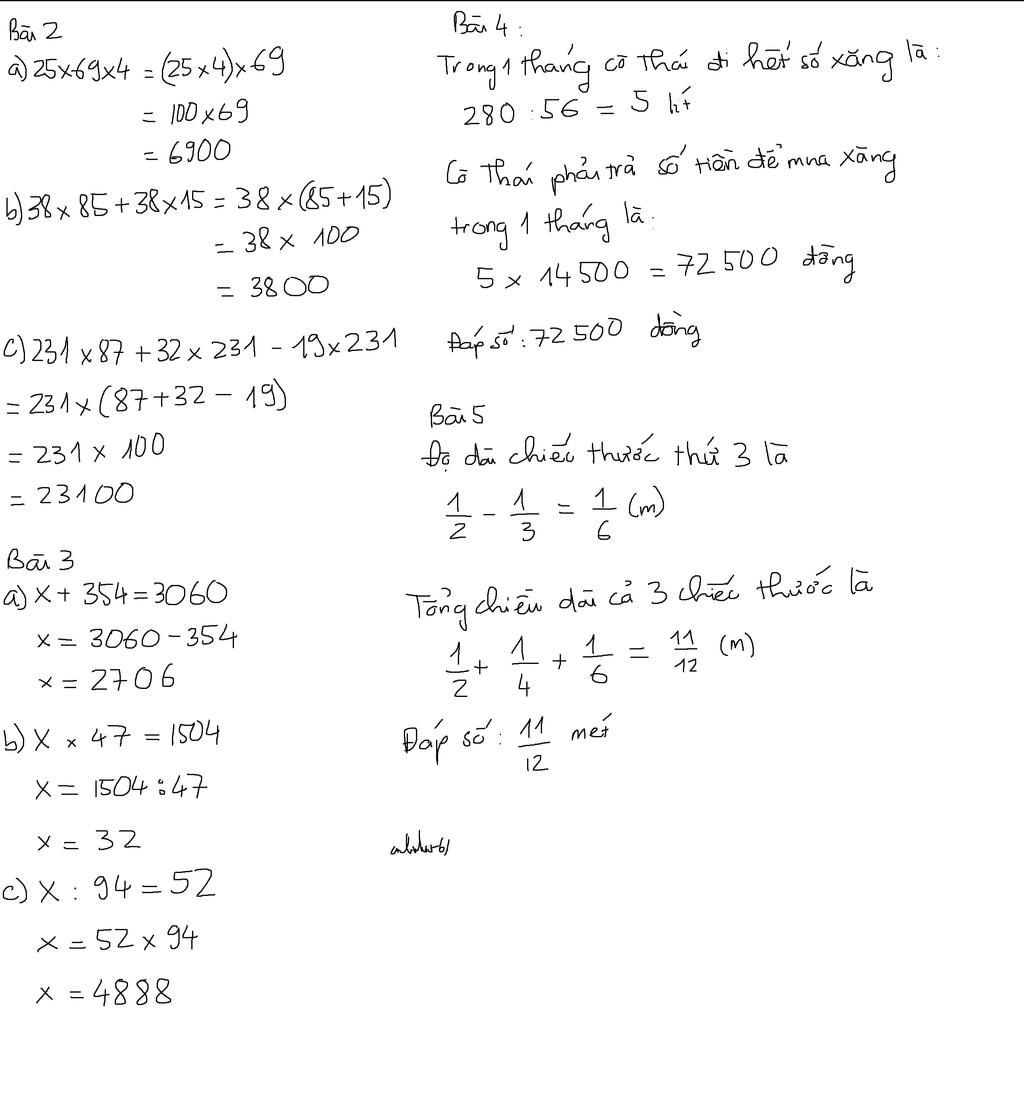 Bài 2
a) 25×69×4 = (25×4)×69
= 100×69
= 6900
b) 38×85+38×15 = 38×(85+15)
= 38× 100
= 3800
c) 231×87+32×231-19×231
= 231×(87+32-19)
= 231× 100
= 23100
Bài 3
a) X+ 354=3060
x= 3060-354
x= 2706
b) X × 47 =1504
x= 1504:47
x= 32
c) X : 94=52
x=52×94
x=4888
Bài 4:
Trong 1 tháng cô Thái đi hết số xăng là:
280 :56 = 5 lít
Cô Thái phải trả số tiền để mua xăng
trong 1 tháng là:
5 × 14500 = 72500 đồng
Đáp số: 72500 đồng
Bài 5
Độ dài chiếc thước thứ 3 là
1/2 - 1/3 = 1/6 (m)
Tổng chiều dài cả 3 chiếc thước là
1/2 + 1/4 + 1/6 = 11/12 (m)
Đáp số: 11/12 mét